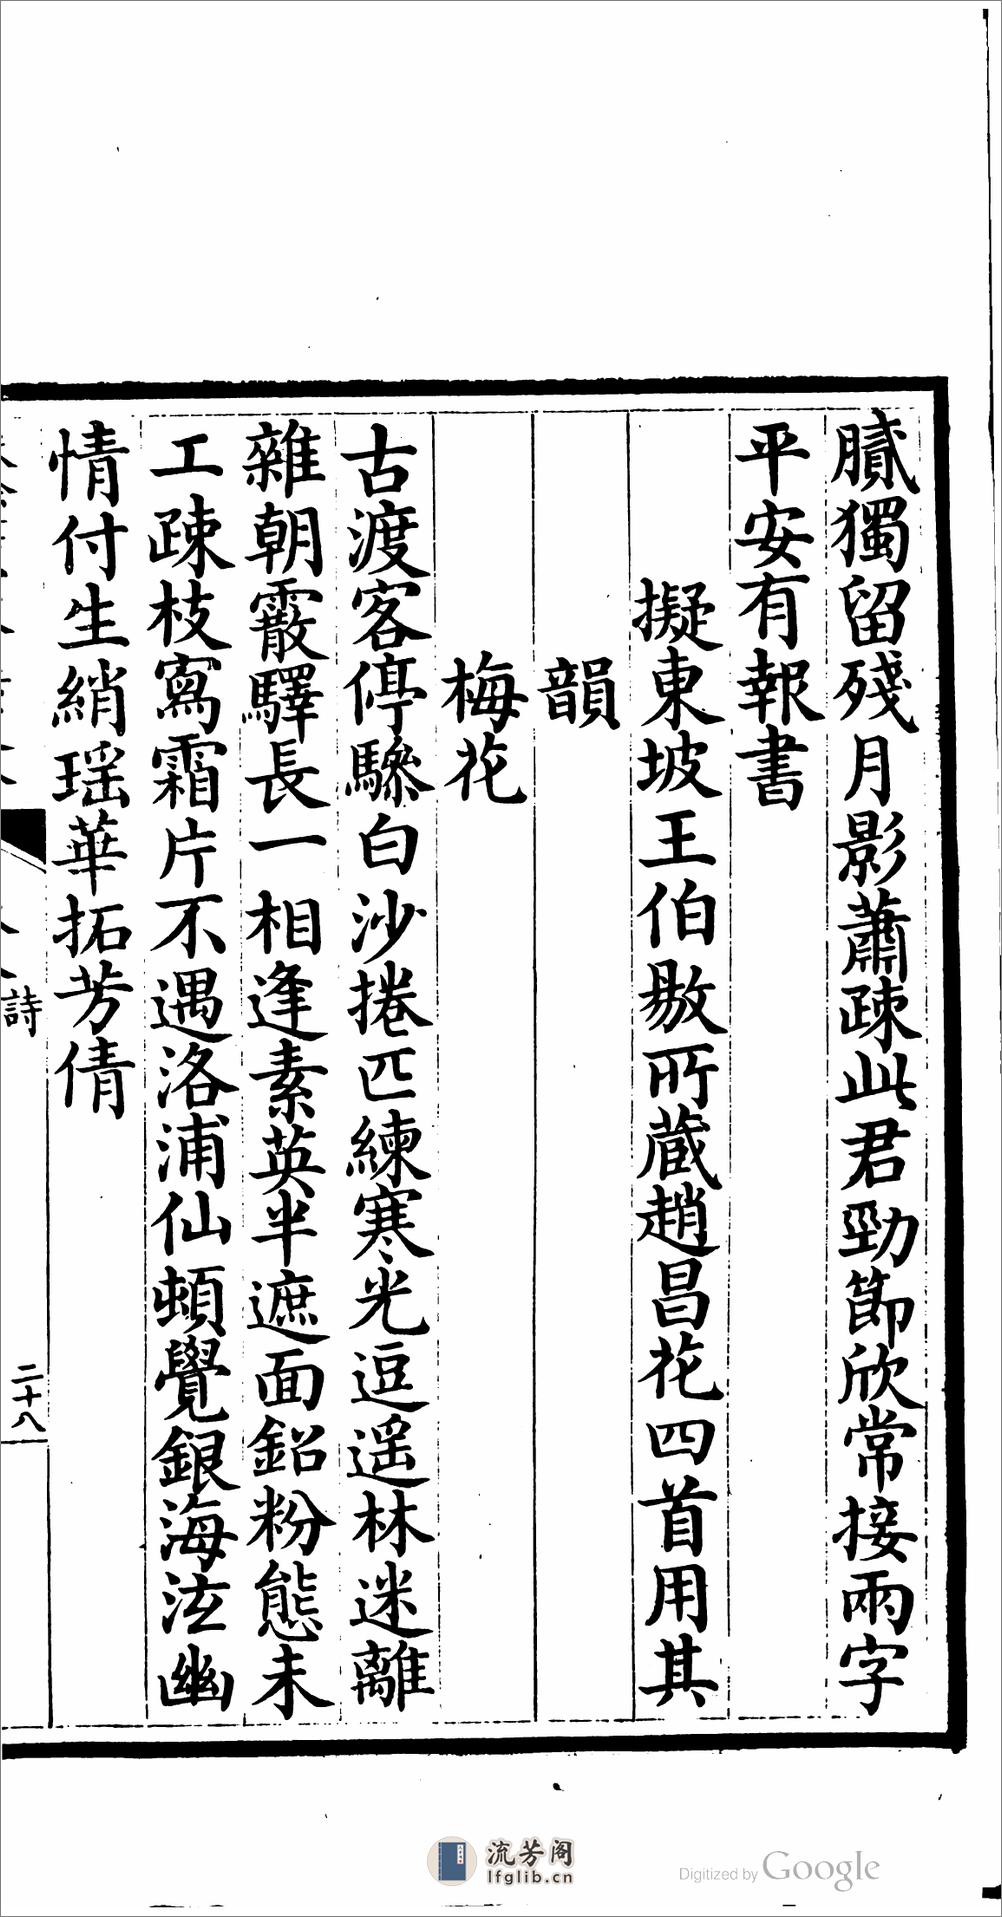 膩獨留殘月影蕭疎此君勁節欣常接兩字
平安有報書
擬東坡王伯敭所藏趙昌花四首用其
韻
梅花
古渡客停驂白沙捲匹練寒光逗遥林迷離
雜朝霰驛長一相逢素英半遮面鉛粉態未
工疎枝寫霜片不遇洛浦仙頓覺銀海泫幽
情付生綃瑶華拓芳倩
詩
二十八
流芳阁
lfglib.cn
Digitized by Google